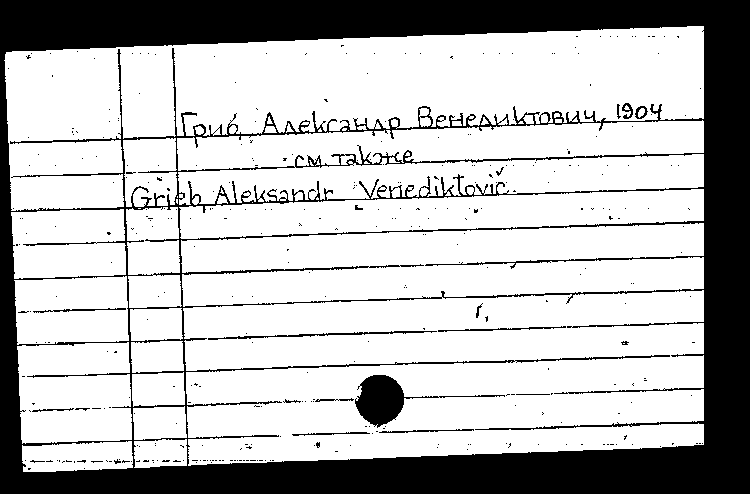 Гриб, Александр Венедиктович, 1904
см. также
Grieb, Aleksandr Venediktovič.